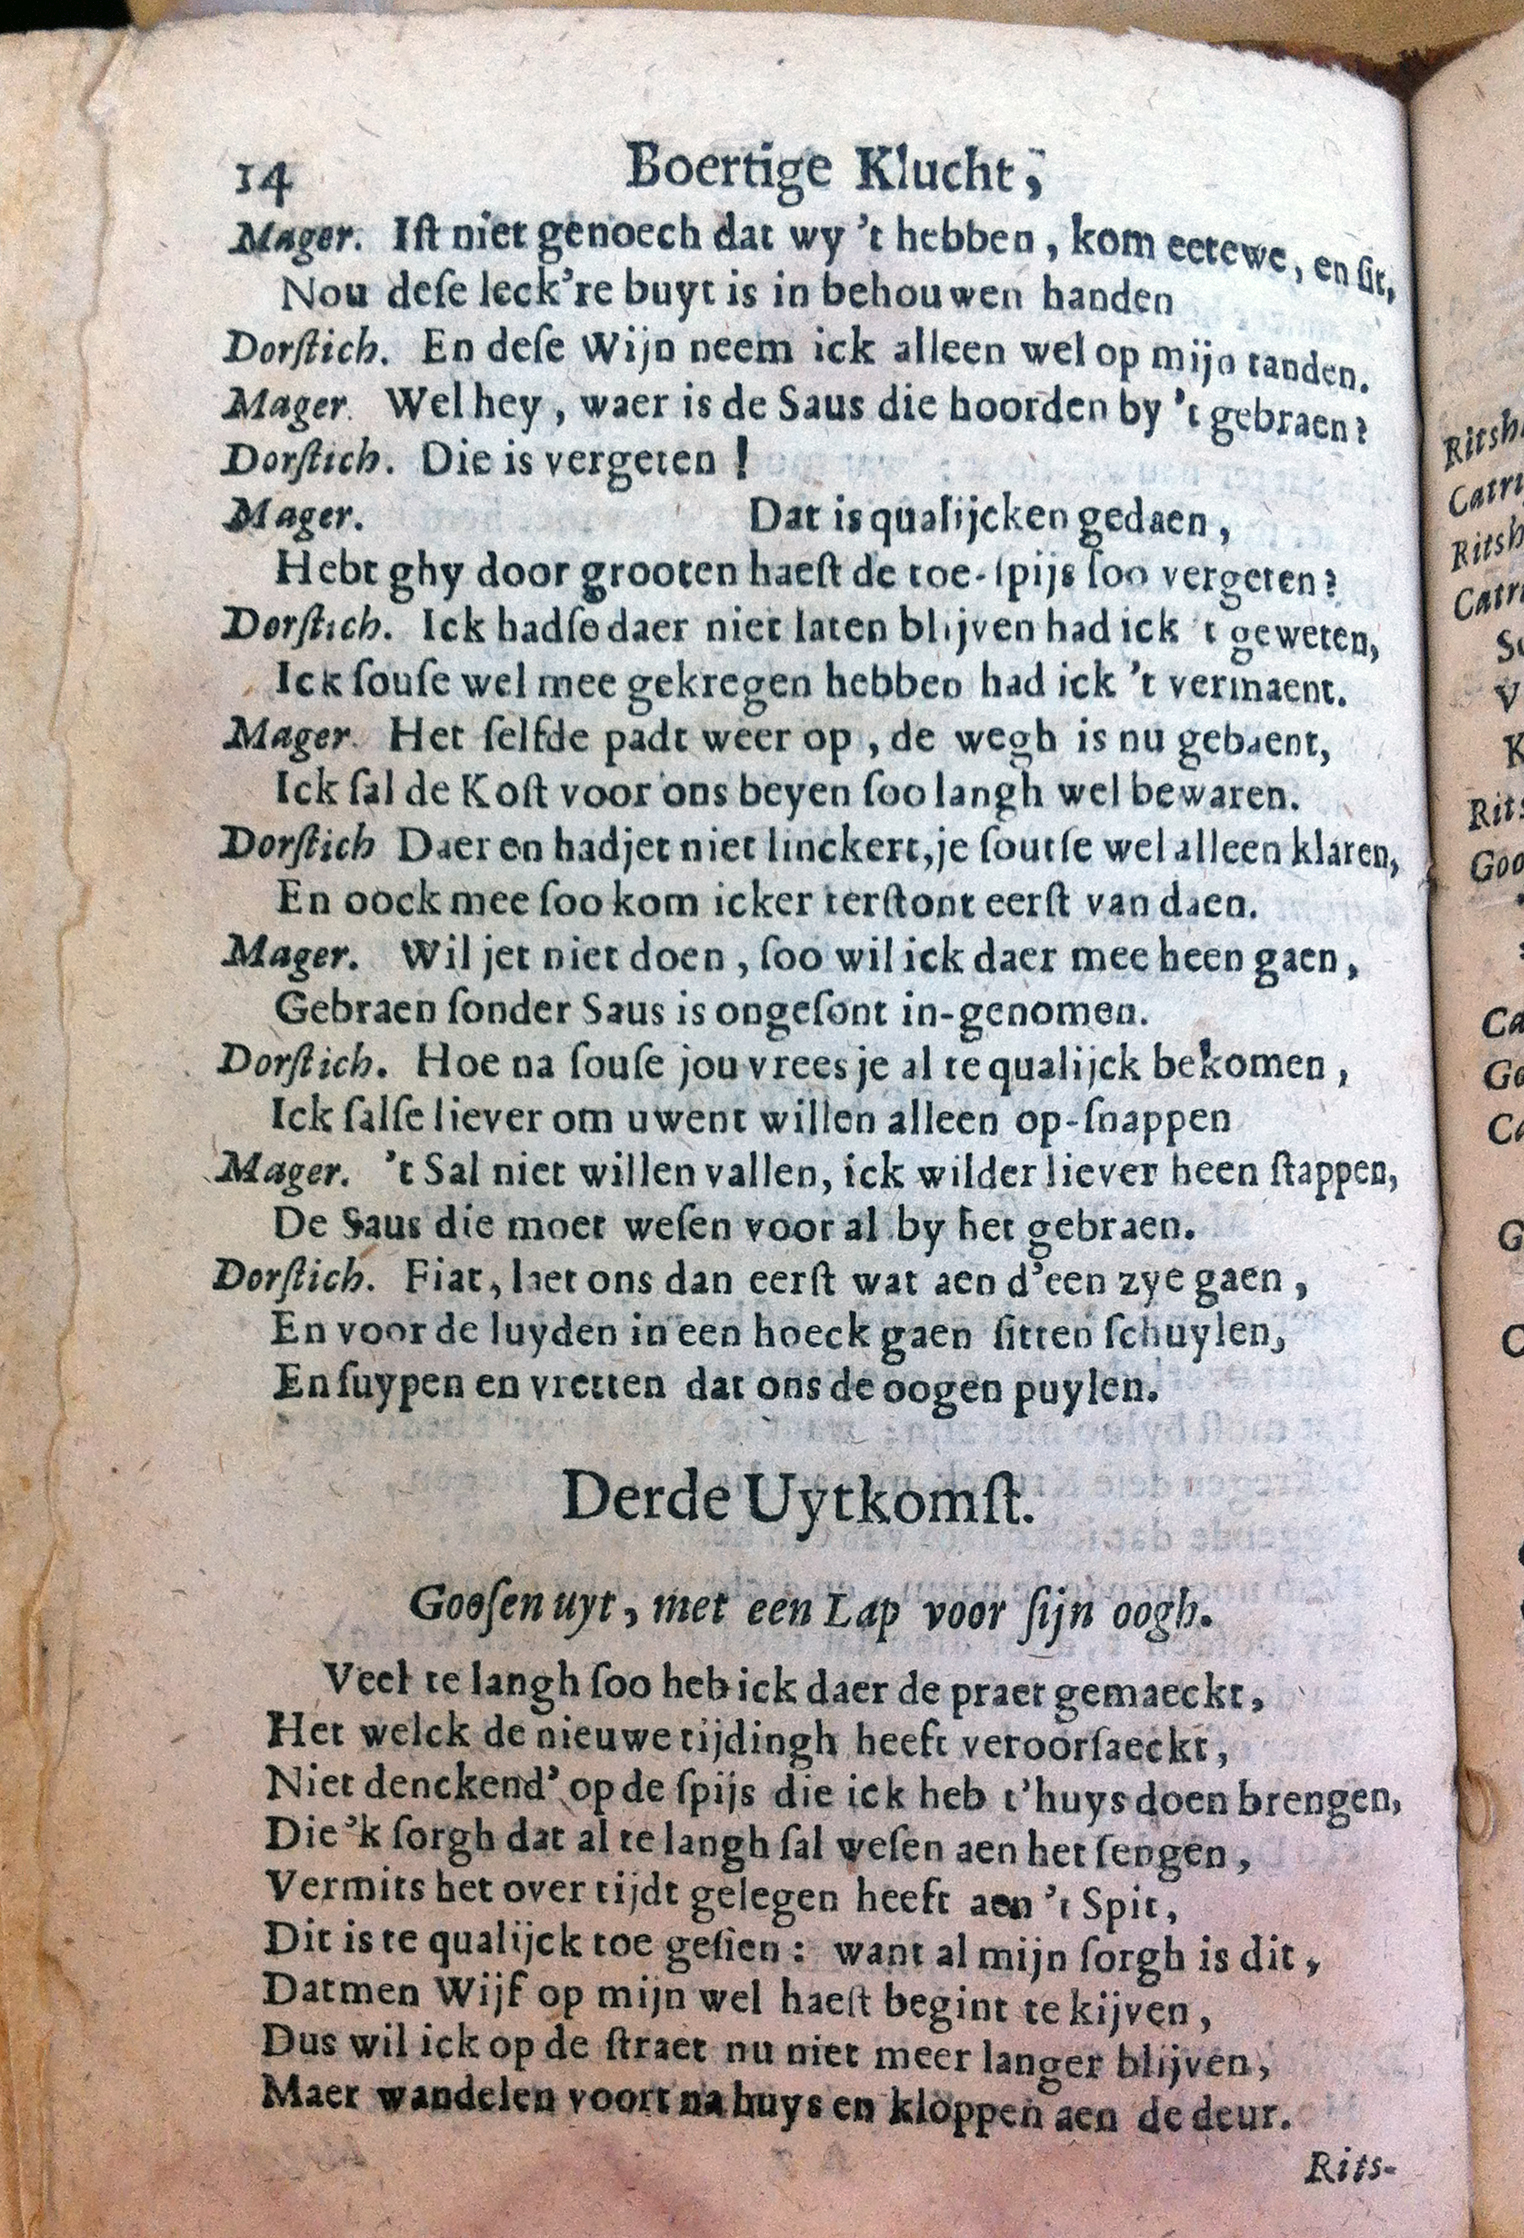 14 Boertige Klucht,
Mager. Iſt niet genoech dat wy 't hebben, kom eetewe, en ſit,
Nou deſe leck're buyt is in behouwen handen
Dorſtich. En deſe Wijn neem ick alleen wel op mijn tanden.
Mager. Wel hey, waer is de Saus die hoorden by 't gebraen?
Dorſtich. Die is vergeten!
Mager. Dat is qualijcken gedaen,
Hebt ghy door grooten haeſt de toe-ſpijs ſoo vergeten?
Dorſtich. Ick hadſe daer niet laten blijven had ick 't geweten,
Ick ſouſe wel mee gekregen hebben had ick 't vermaent.
Mager. Het ſelfde padt weer op, de wegh is nu gebaent,
Ick ſal de Koſt voor ons beyen ſoo langh wel bewaren.
Dorſtich Daer en hadjet niet linckert, je ſoutſe wel alleen klaren,
En oock mee ſoo kom icker terſtont eerſt van daen.
Mager. Wil jet niet doen, ſoo wil ick daer mee heen gaen,
Gebraen ſonder Saus is ongeſont in-genomen.
Dorſtich. Hoe na ſouſe jou vrees je al te qualijck bekomen,
Ick ſalſe liever om uwent willen alleen op-ſnappen
Mager. 't Sal niet willen vallen, ick wilder liever heen ſtappen,
De Saus die moet weſen voor al by het gebraen.
Dorſtich. Fiat, laet ons dan eerſt wat aen d'een zye gaen,
En voor de luyden in een hoeck gaen ſitten ſchuylen,
En ſuypen en vretten dat ons de oogen puylen.
Derde Uytkomſt.
Gooſen uyt, met een Lap voor ſijn oogh.
Veel te langh ſoo heb ick daer de praet gemaeckt,
Het welck de nieuwe tijdingh heeft veroorſaeckt,
Niet denckend' op de ſpijs die ick heb t'huys doen brengen,
Die 'k ſorgh dat al te langh ſal weſen aen het ſengen,
Vermits het over tijdt gelegen heeft aen 't Spit,
Dit is te qualijck toe geſien: want al mijn ſorgh is dit,
Datmen Wijf op mijn wel haeſt begint te kijven,
Dus wil ick op de ſtraet nu niet meer langer blijven,
Maer wandelen voort na huys en kloppen aen de deur.
Rits-